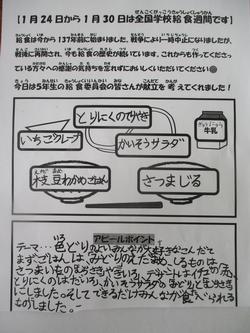 【1月24日から1月30日は全国学校給食週間です】
給食は今から137年前に始まりました。戦争により一時中止になりましたが、
戦後に再開され、今も給食の歴史が続いています。これからも作ってくださっ
ている方々への感謝の気持ちを忘れずにおいしくいただいてください
今日は5年生の給食委員会の皆さんが献立を考えてくれました!
とりにくのてりやき
いちごクレープ
かいそうサラダ
ぎゅうにゅう
牛乳
枝豆わかめごはん
さつまじる
アピールポイント
テーマ…色どりのよいみんなが大好きなこんだて
まずごはんは、みどりのえだまめ、しるものは
さつまいもの
デザートは
とりにくのは だいろ、かいそうサラダの みどりと
にしました。そしてできるだけみんなが 食べられる
ものにしました。